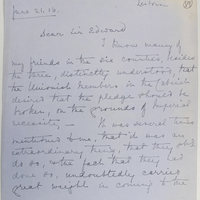 June 21. 16.
Dear Sir Edward
I know many of
my friends in the six counties, besides
distinctly understood, that
the Unionist members in the
desired that the pledge should be
broken, on the grounds of Imperial
necessity. It was several times
mentioned to me, that it was an
extraordinary thing, that they
do so, & the fact that they had
done so, undoubtedly carried
great weight in coming to the